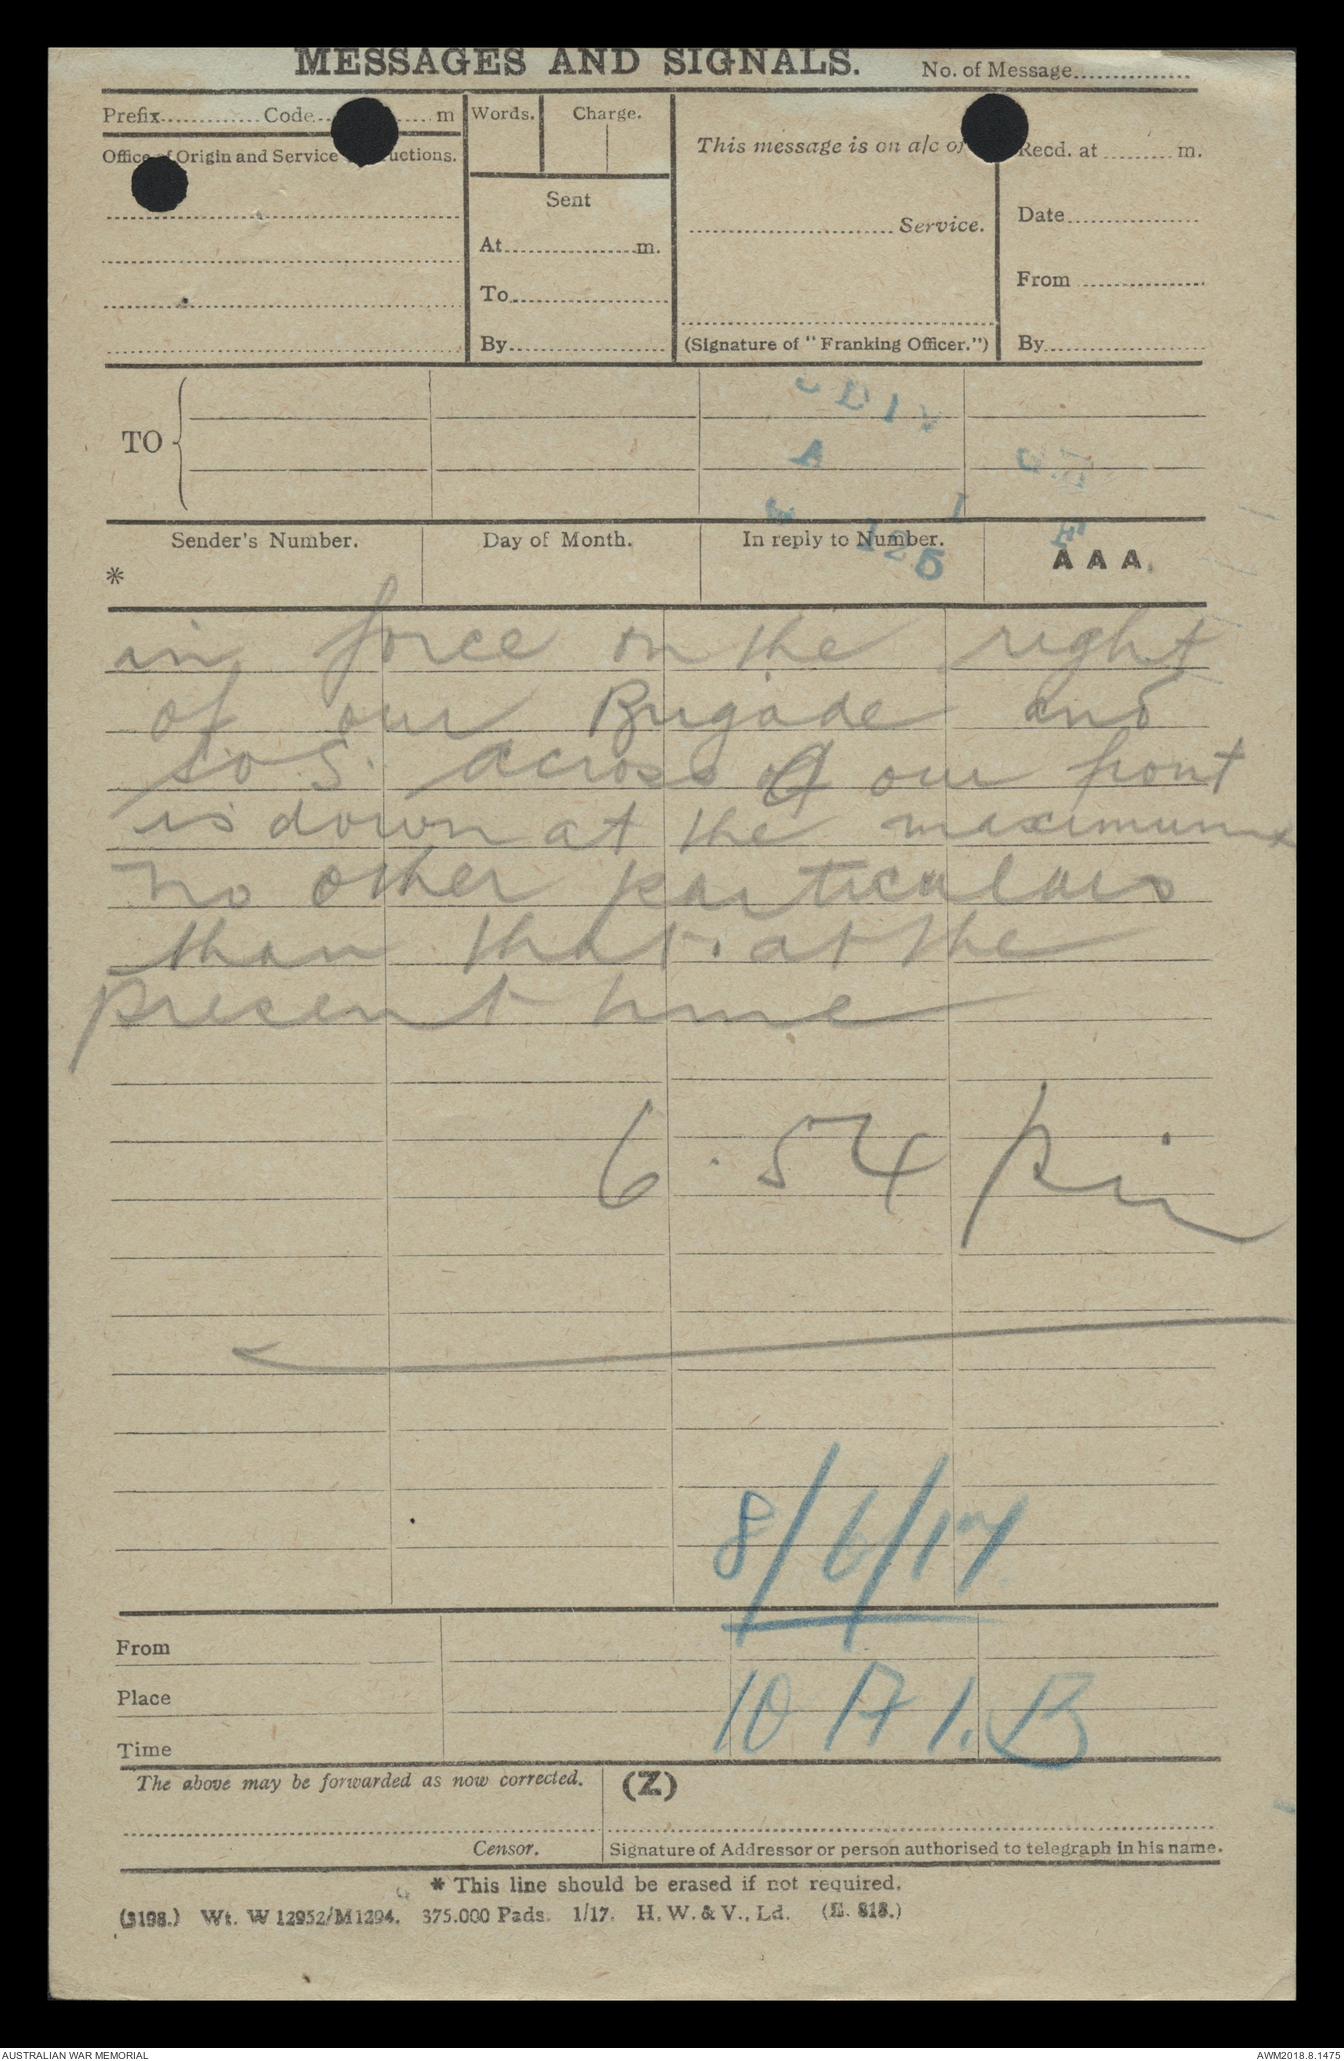 MESSAGES AND SIGNALS.
No. of Message...............
Prefix............. Code.. ..... m
Words.
Charge.
Office of Origin and Service uctions.
This message is on a/c of
Recd. at .......... m.
Sent
Date...................
......................... Service.
At....................m.
From ...................
To........................
By........................
(Signature of "Franking Officer.")
By.......................
TO
DIV
A
I
F
125
Sender's Number.
Day of Month.
In reply to Number.
AAA.
*
in force on the right
of our Brigade and
S.O.S. across our front
is down at the maximum
no other particulars
than that at the
present time
6.54 pm
8/6/17
From
Place
10 A I. B
Time
The above may be forwarded as now corrected.
(Z)
Censor.
Signature of Addressor or person authorised to telegraph in his name.
* This line should be erased if not required.
(3198.) Wt. W 12952/M1294. 375.000 Pads. 1/17. H. W. & V., Ld. (E. 818.)
AUSTRALIAN WAR MEMORIAL
AWM2018.8.1475